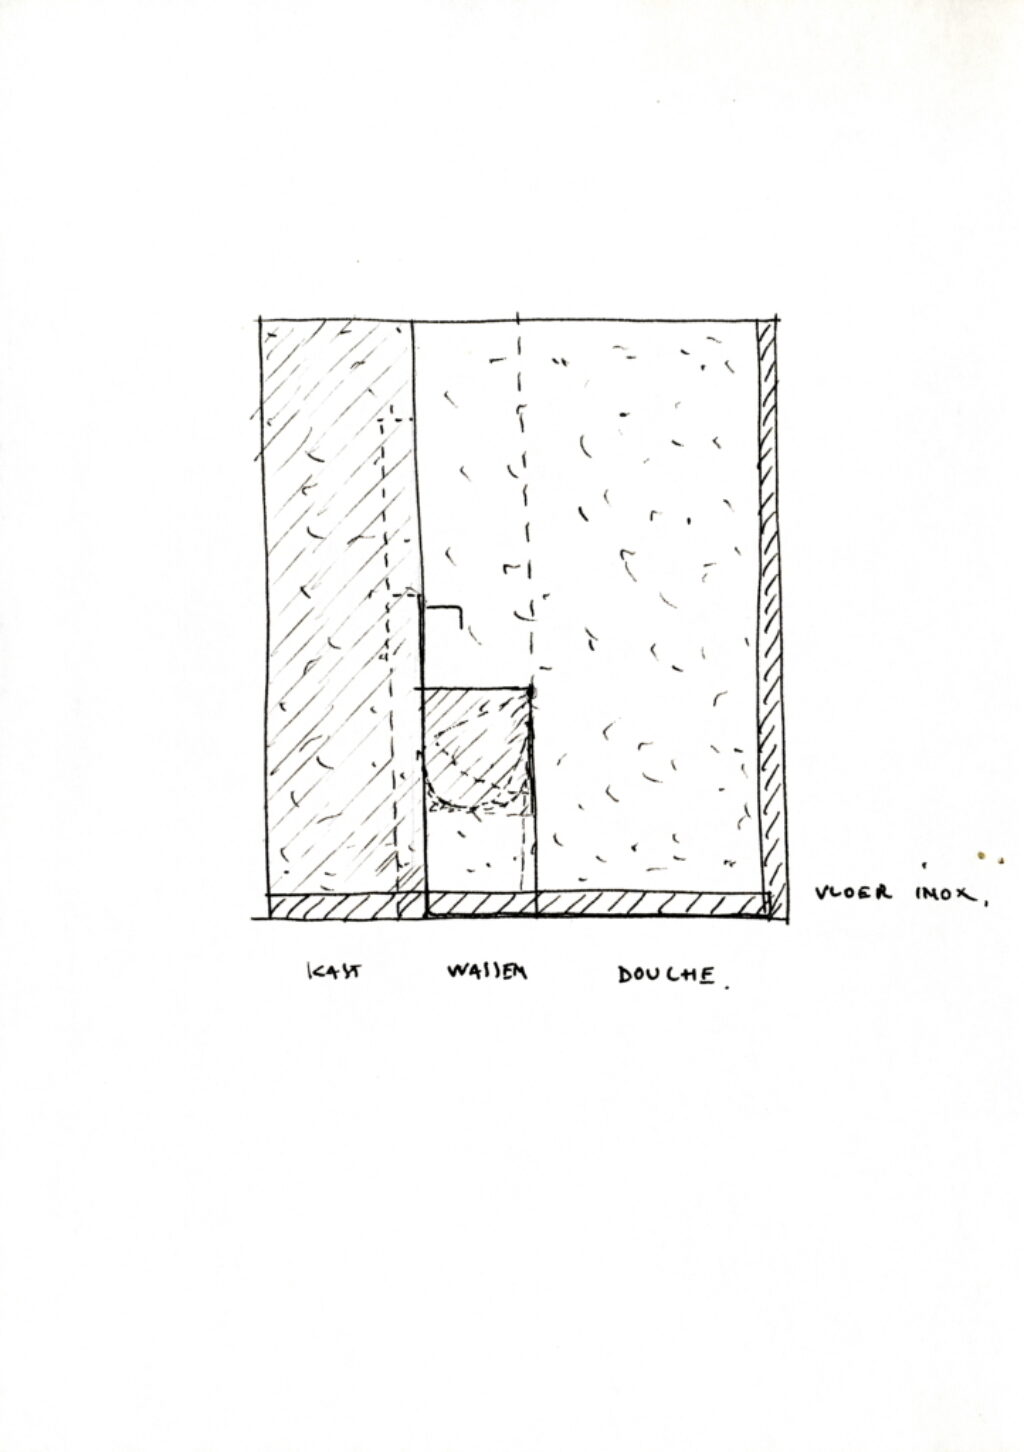 VLOER INOX.
KAST WASSEN DOUCHE.